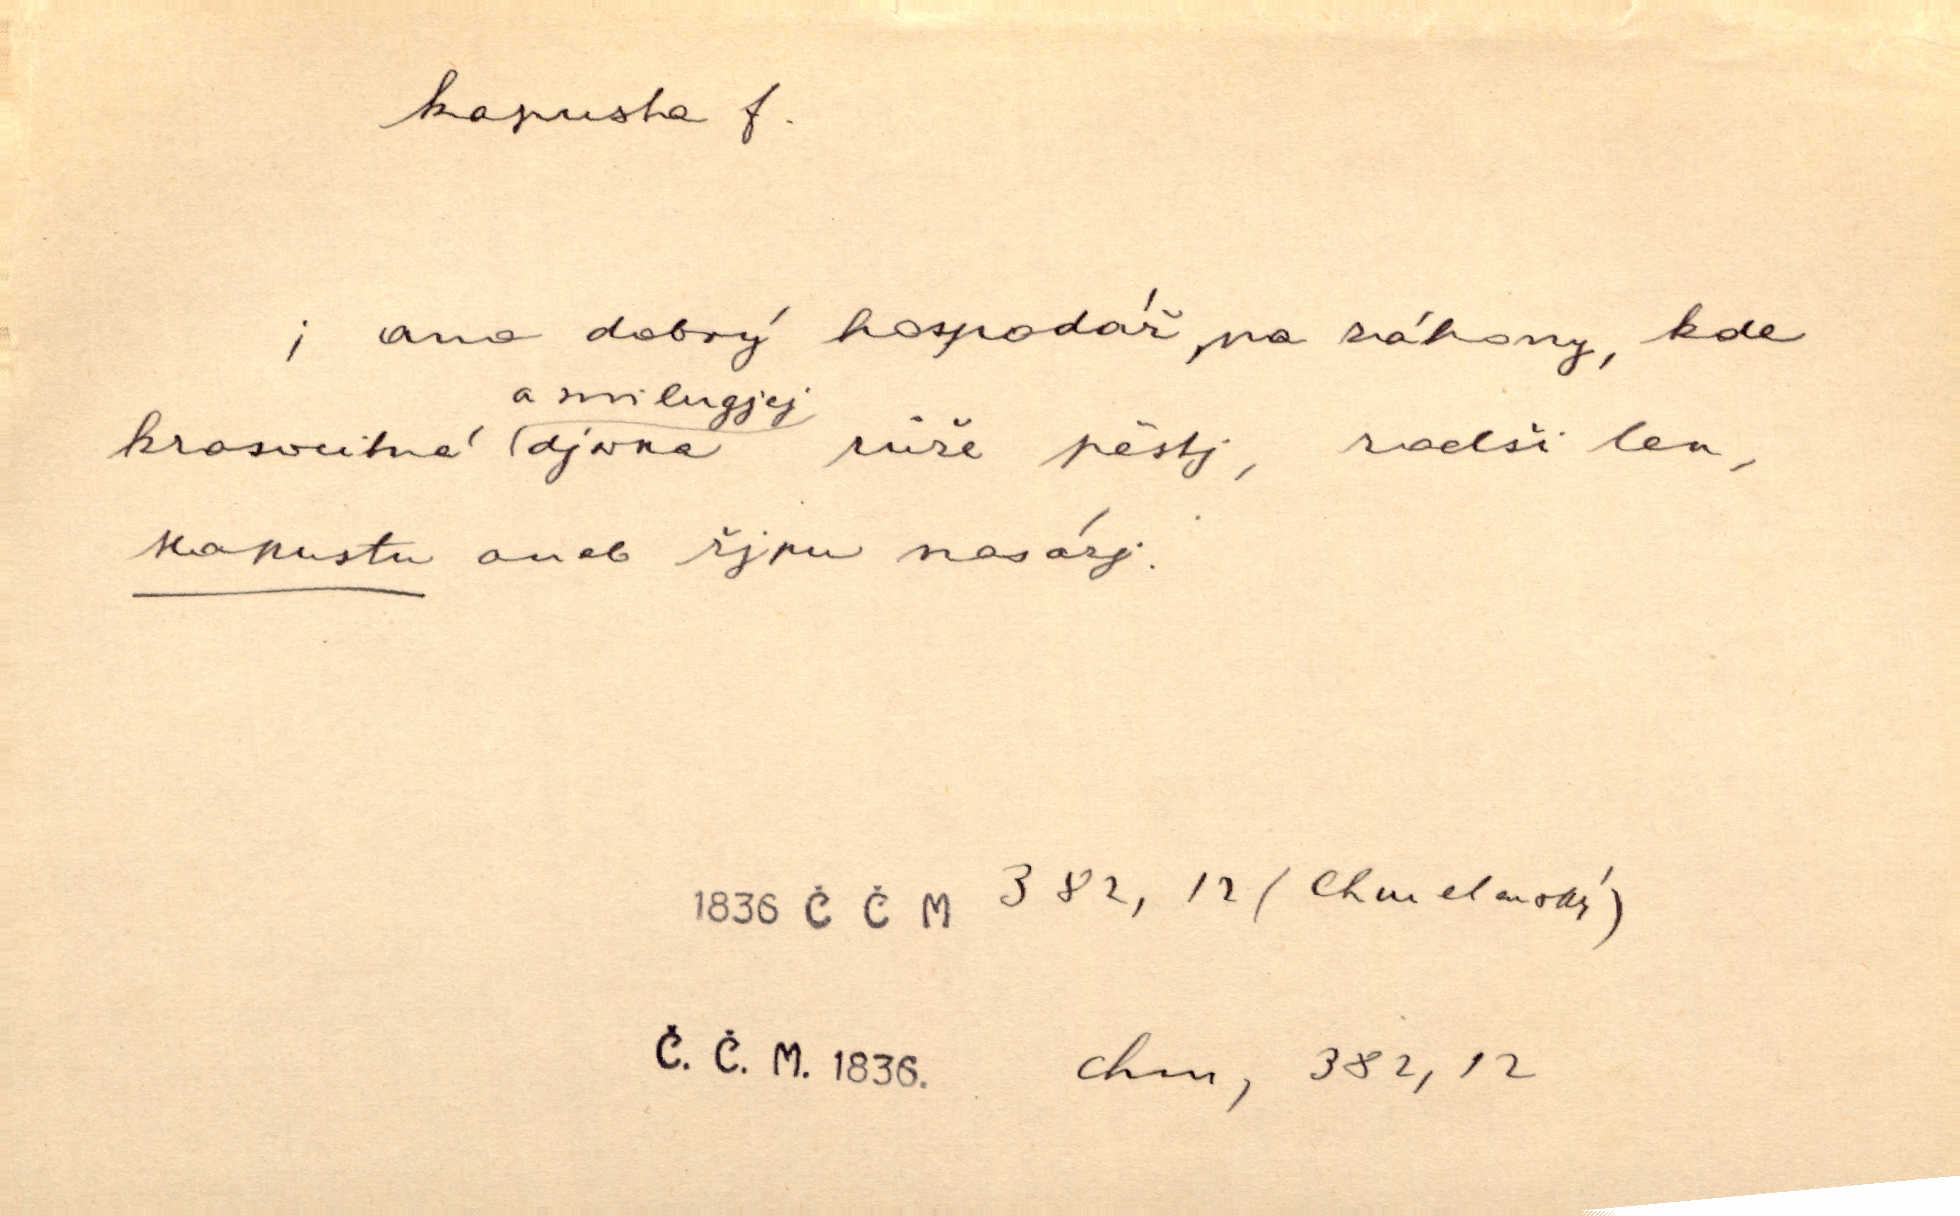 kapusta f.
j ano dobrý hospodář, na záhony, kde
a milugjcj
krasocitná djwka růže pěstj, radši len,
kapustu aneb řjpu nasázj.
1836 Č Č M 382, 12 (Chmelenský)
Č. Č. M. 1836. Chm, 382, 12